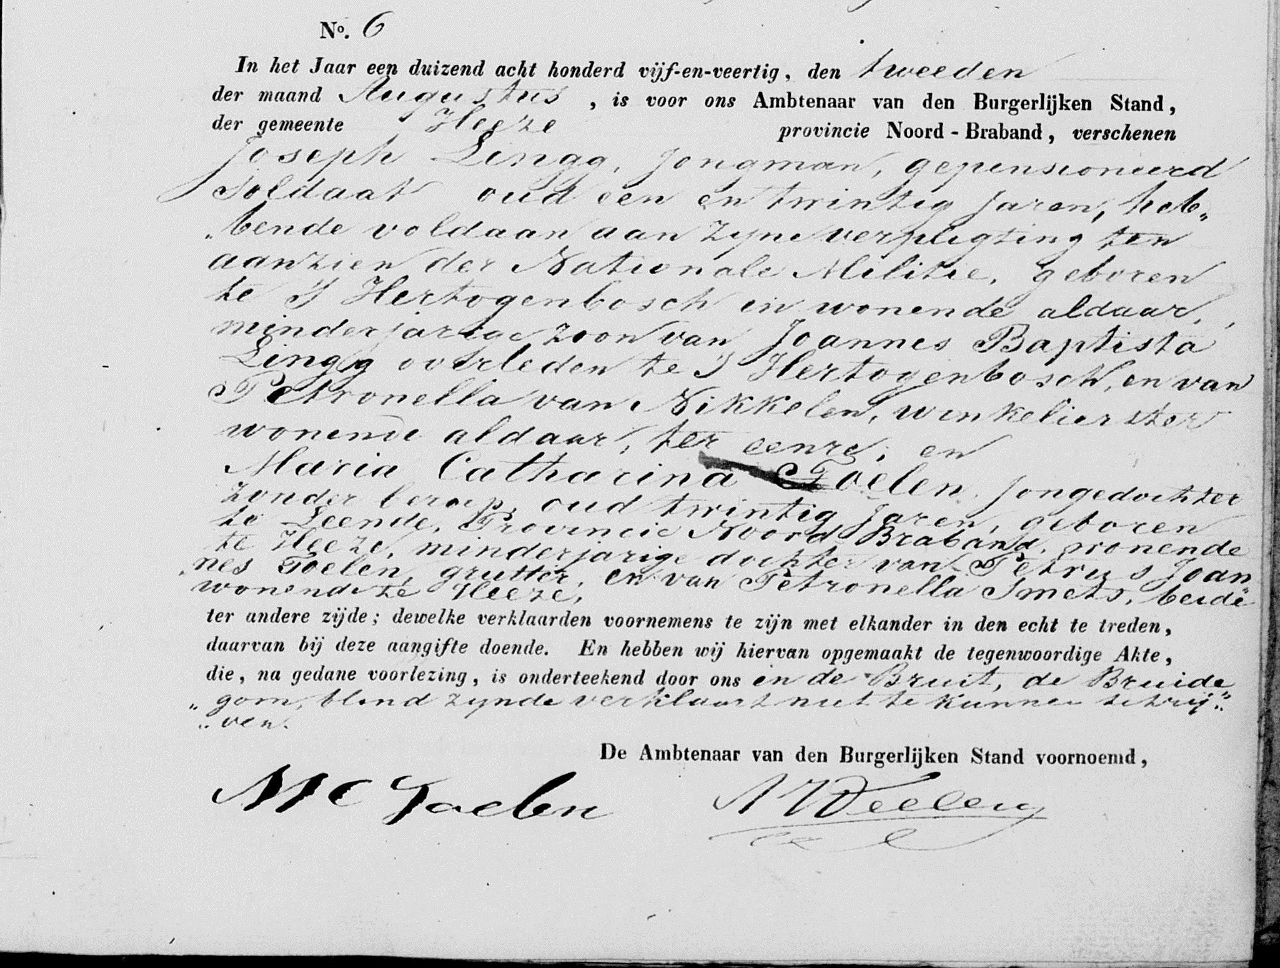 No. 6
In het Jaar een duizend acht honderd vijf-en-veertig, den tweeden
der maand Augustus, is voor ons Ambtenaar van den Burgerlijken Stand,
der gemeente Heeze provincie Noord-Braband, verschenen
Joseph Lingg, Jongman, gepensioneerd
Soldaat oud een en twintig jaren, heb„
„bende voldaan aan zyne verpligting ten
aanzien der Nationale Militie, geboren
te S Hertogenbosch en wonende aldaar,
minderjarige zoon van Joannes Baptista
Lingg overleden te S Hertogenbosch, en van
Petronella van Nikkelen, winkelierster
wonende aldaar, ter eenre, en
Maria Catharina Toelen, jongedochter
zonder beroep, oud twintig jaren, geboren
te Leende, Provincie Noord Braband, wonende
te Heeze, minderjarige dochter van Petrus Joan„
„nes Toelen, grutter, en van Petronella Smets, beide
wonende te Heeze,
ter andere zijde; dewelke verklaarden voornemens te zijn met elkander in den echt te treden,
daarvan bij deze aangifte doende. En hebben wij hiervan opgemaakt de tegenwoordige Akte,
die, na gedane voorlezing, is onderteekend door ons en de Bruit, de Bruide„
„gom, blend zynde verklaart niet te kunnen schrij„
„ven.
De Ambtenaar van den Burgerlijken Stand voornoemd,
M C Toelen